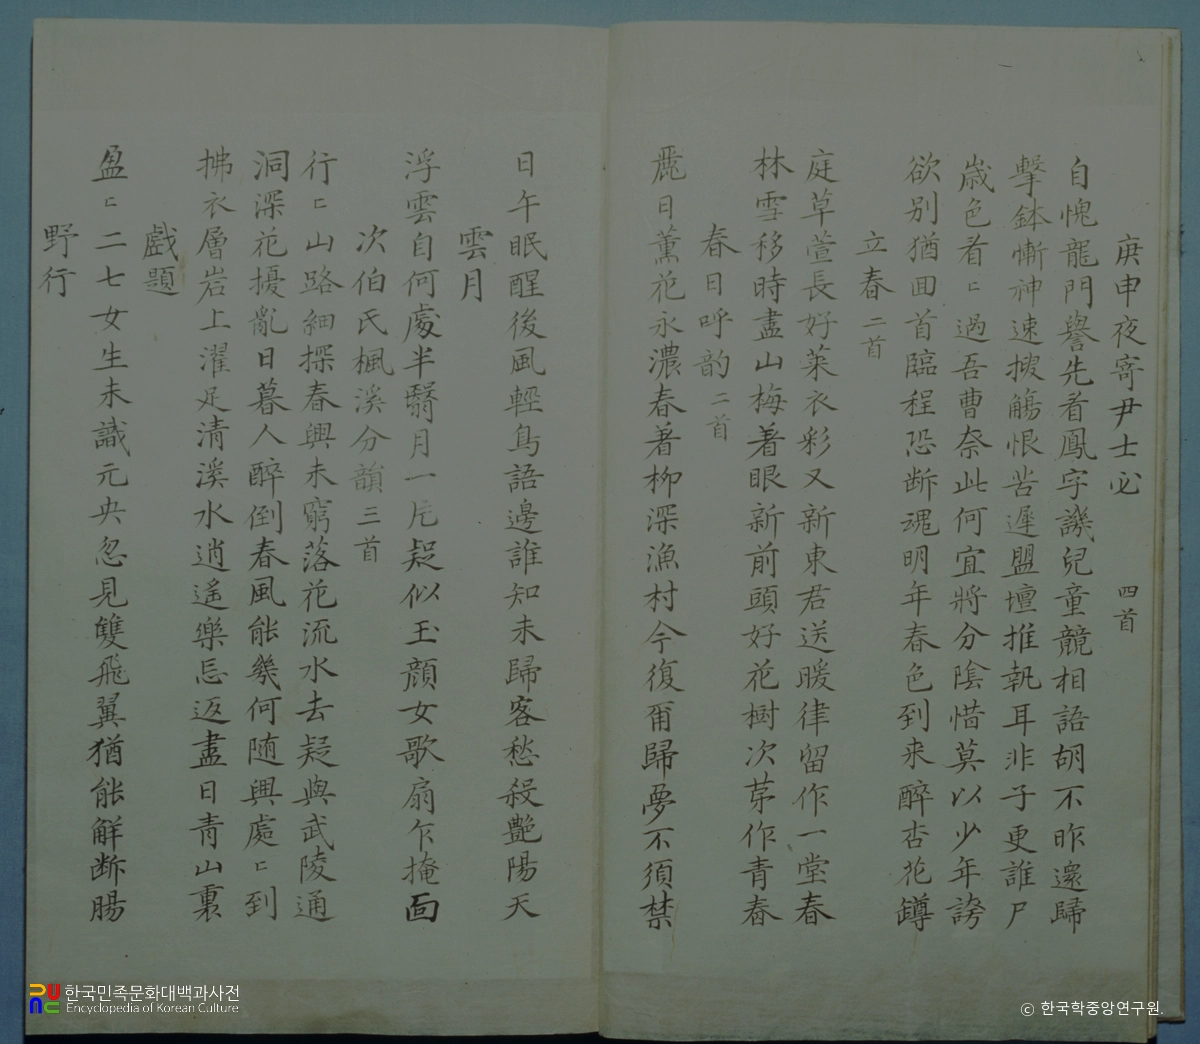 庚申夜寄尹士必 四首
自愧龍門譽先看鳳字譏兒童競相語胡不昨還歸
擊鉢慚神速搜觴恨苦遲盟壇推執耳非子更誰尸
歲色看〻過吾曹奈此何宜將分陰惜莫以少年誇
欲别猶回首臨程恐断魂明年春色到来醉杏花罇
立春 二首
庭草萱長好萊衣彩又新東君送暖律留作一堂春
林雪移時盡山梅着眼新前頭好花樹次苐作青春
春日呼韵 二首
麗日薰花永濃春着柳深漁村今復爾歸夢不須禁
日午眠醒後風輕鳥語邊誰知未歸客愁殺艶陽天
雲月
浮雲自何處半翳月一片疑似玉顔女歌扇乍掩面
次伯氏楓溪分韻 三首
行〻山路細探春興未窮落花流水去疑與武陵通
洞深花擾亂日暮人醉倒春風能幾何随興處〻到
拂衣層岩上濯足清溪水逍遙樂忘返盡日青山裏
戲題
盈〻二七女生未識元央忽見雙飛翼猶能解断腸
野行
한국민족문화대백과사전
Encyclopedia of Korean Culture
© 한국학중앙연구원.